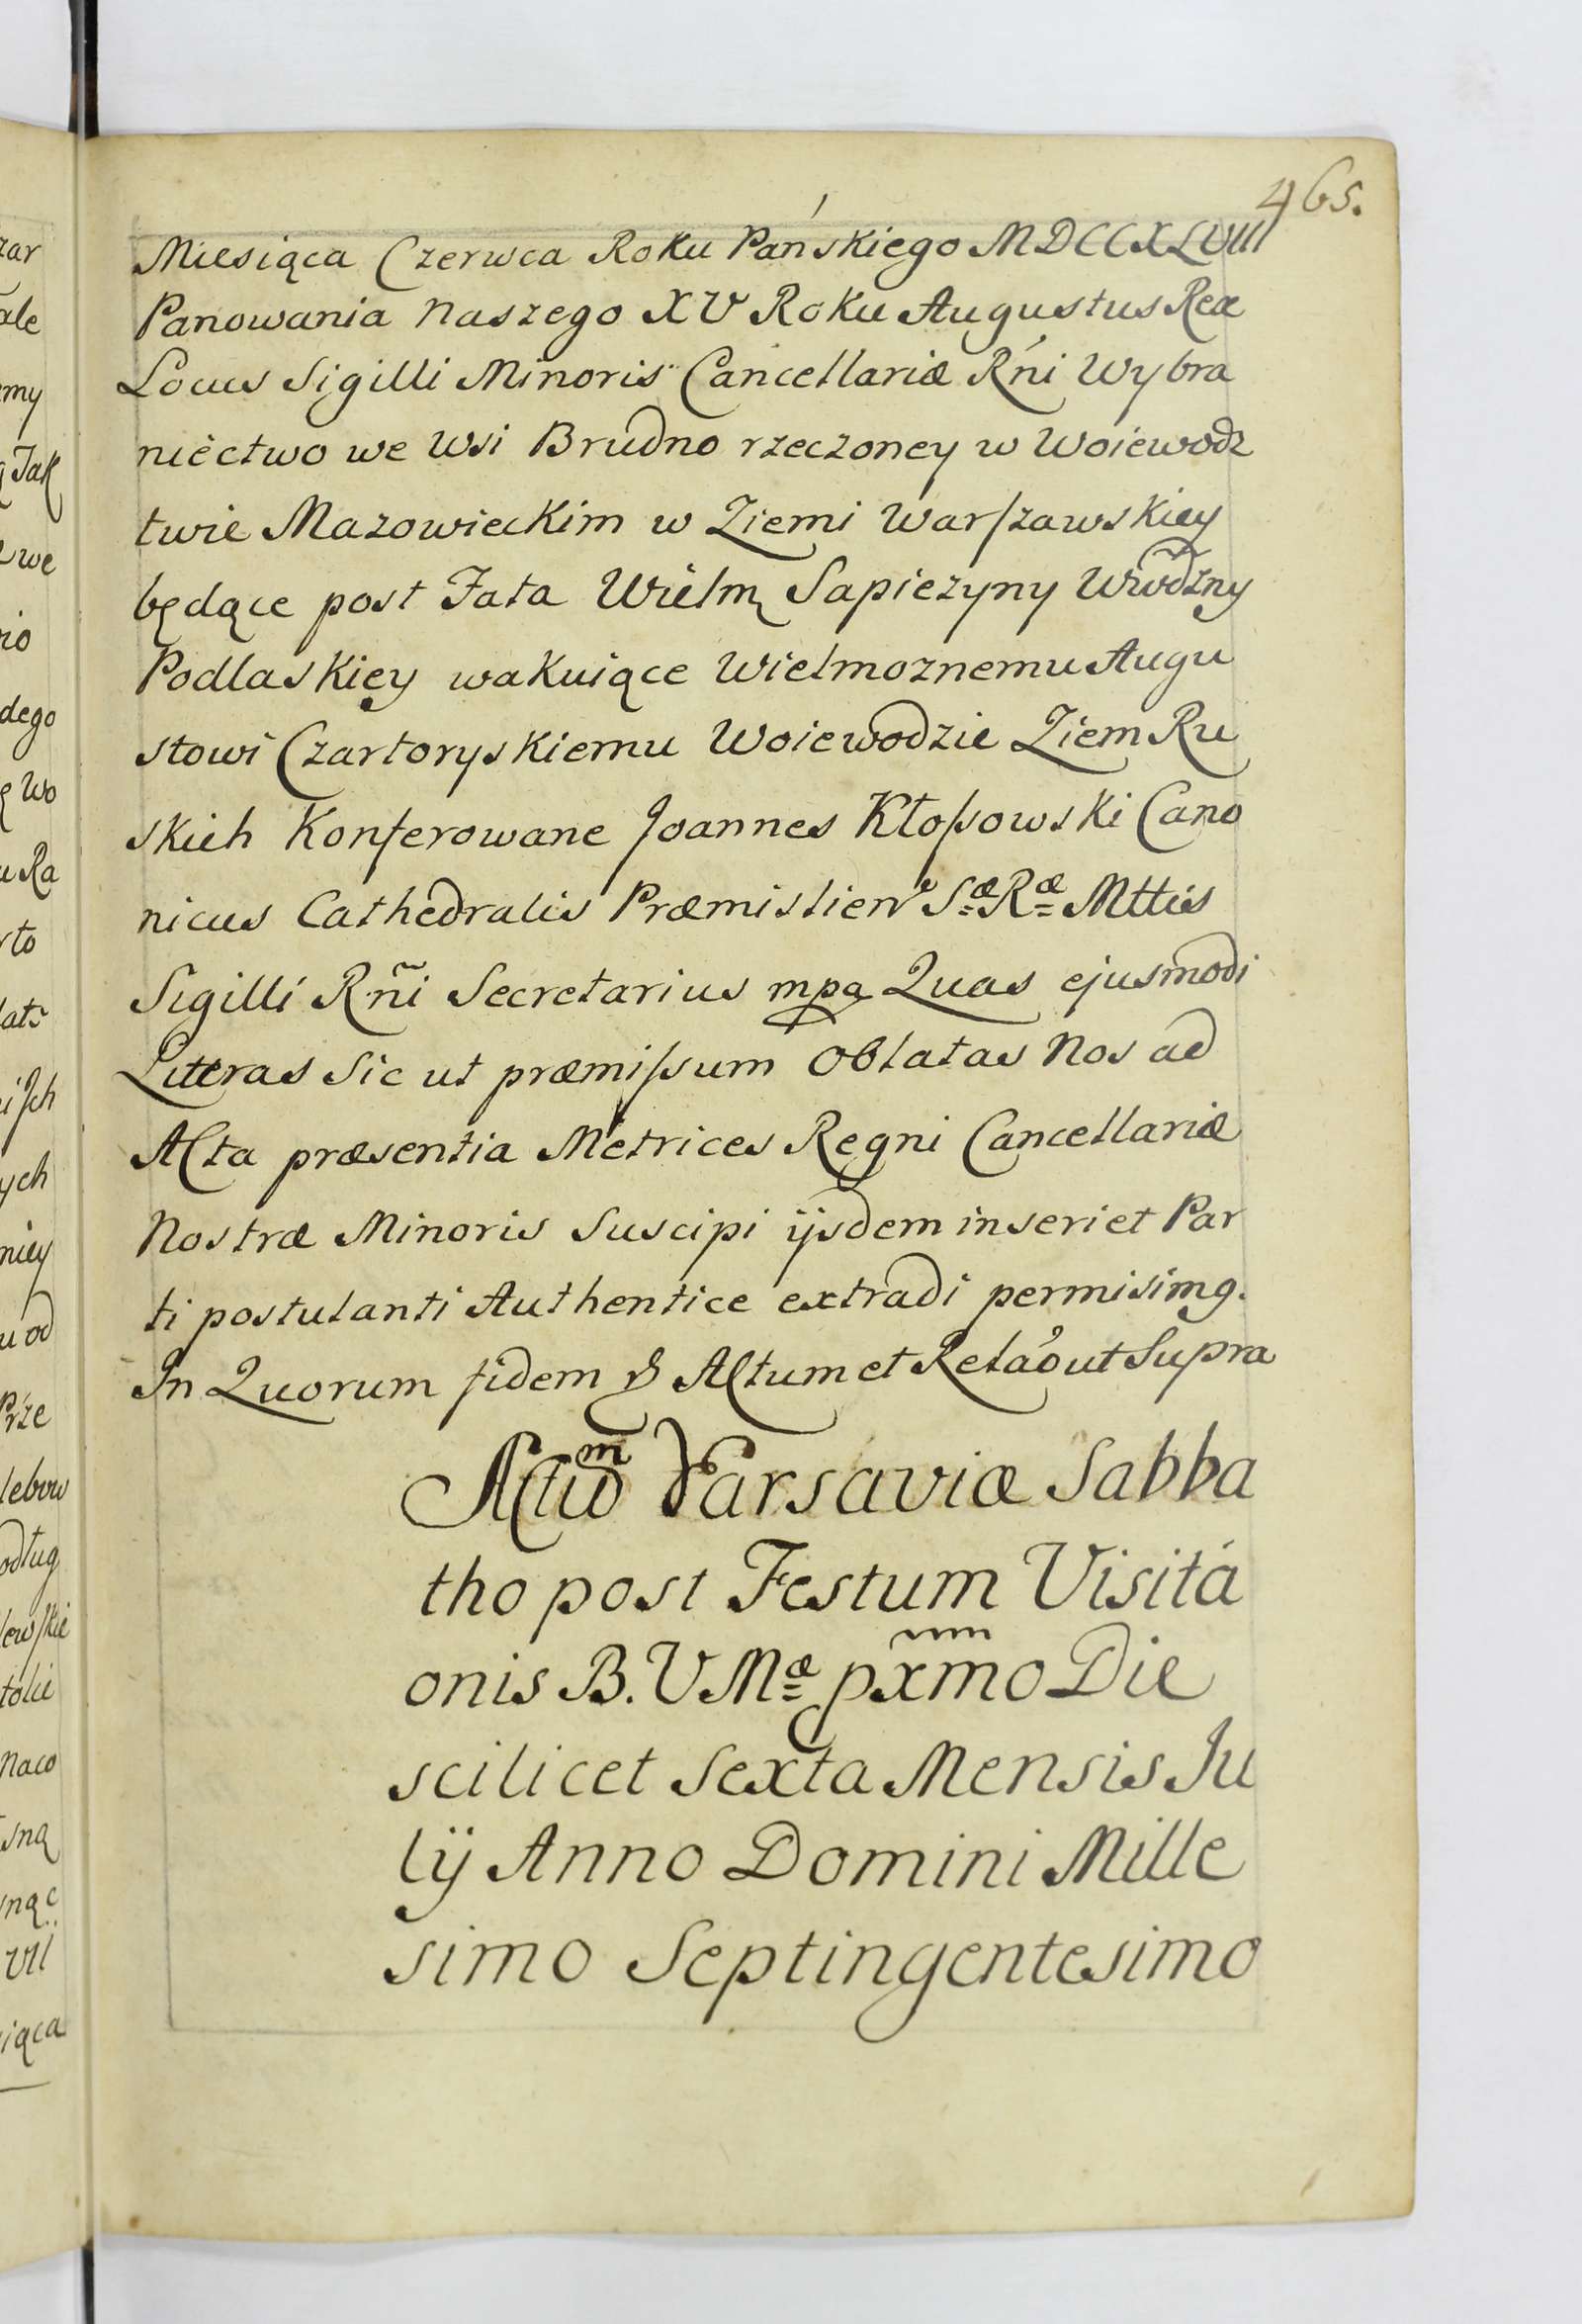 465.
Miesiąca Czerwca Roku Pańskiego MDCCXLVIII
Panowania Naszego XV Roku Augustus Rex
Locus Sigilli Minoris Cancellariæ Rńi Wybra
niectwo we Wsi Brudno rzeczoney w Woiewodz
twie Mazowieckim w Ziemi Warszawskiey
będące post Fata Wielm Sapiezyny Wwdzny
Podlaskiey wakuiące Wielmoznemu Augu
stowi Czartoryskiemu Woiewodzie Ziem Ru
skich Konferowane Joannes Kłossowski Cano
nicus Cathedralis Præmislien Sæ Ræ Mttis
Sigilli Rñi Secretarius mpa Quas ejusmodi
Literas Sic ut præmissum Oblatas Nos ad
Acta præsentia Metrices Regni Cancellariæ
Nostræ Minoris Suscipi ijsdem inseri et Par
ti postulanti Authentice extradi permisimq.
In Quorum fidem & Actum et Relão ut Supra
Actum Varsaviæ Sabba
tho post Festum Visitá
onis B. V Mæ pxmo Die
scilicet Sexta Mensis Ju
lij Anno Domini Mille
simo Septingentesimo